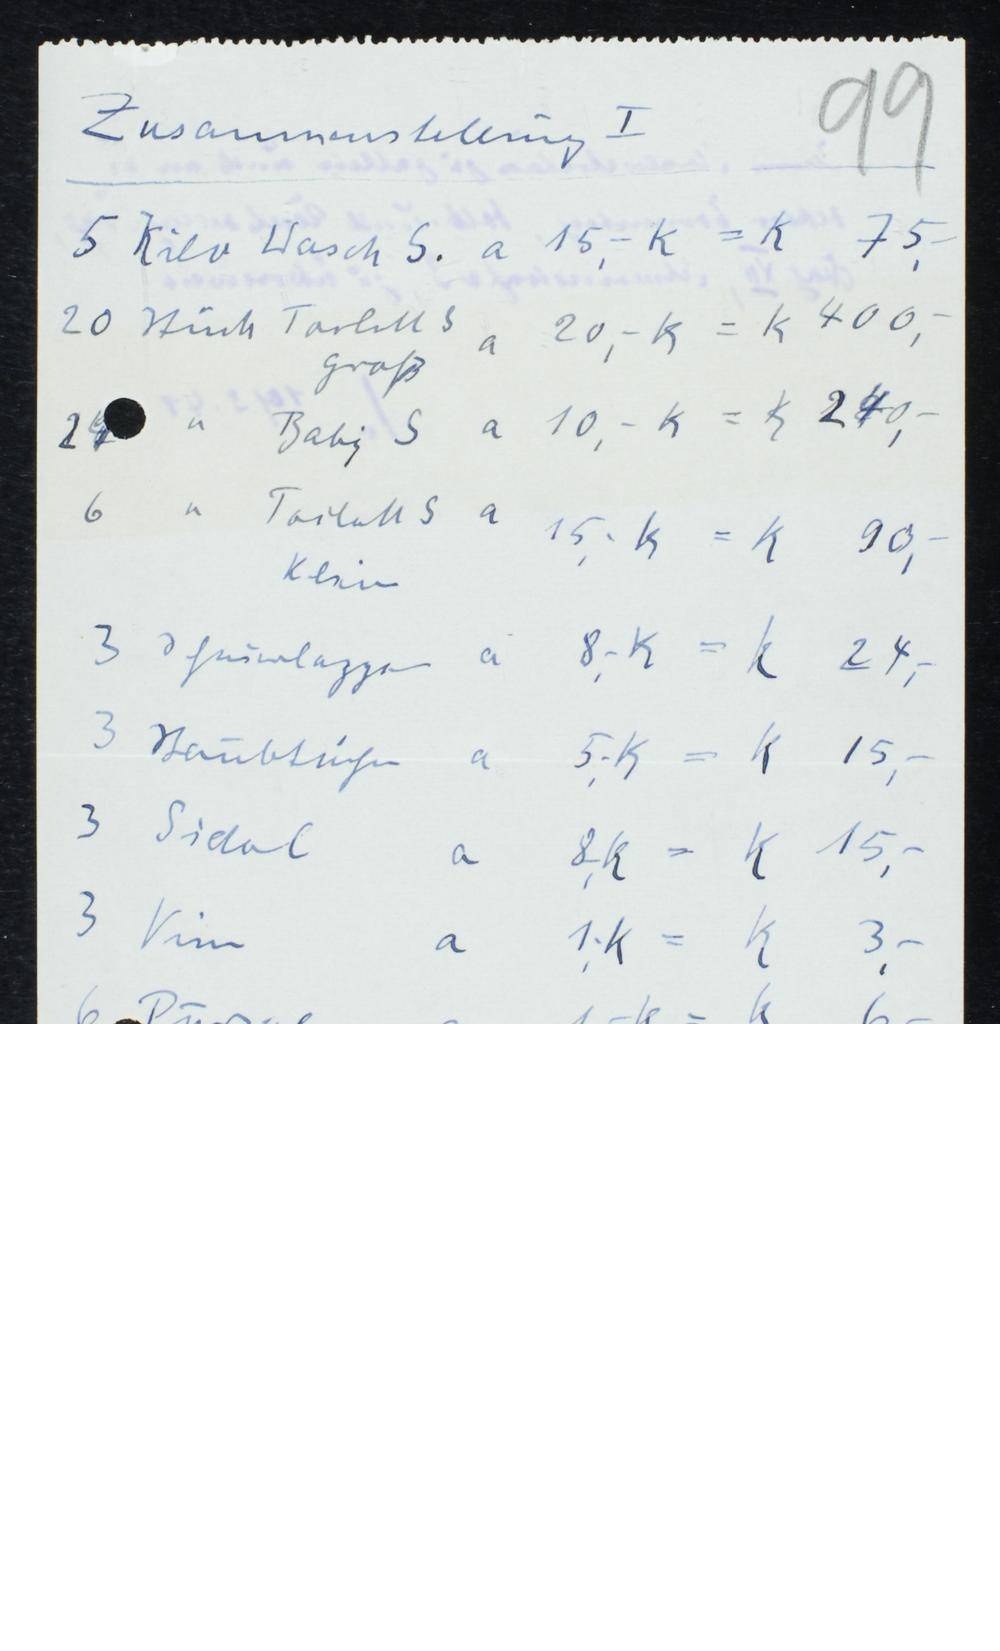 99
Zusammenstellung I
5 Kilo Wasch S. a 15,- K = K 75,-
20 Stück Toilett S a 20,- K = K 400,-
groß
24 " Baby S a 10,- K = K 240,-
6 " Toilett S a 15,- K = K 90,-
Klein
3 a 8,- K = K 24,-
3 Staubtücher a 5,- K = K 15,-
3 Sidol a 8,K = K 15,-
3 Vim a 1,- K = K 3,-
6 a 1,- K = K 6,-